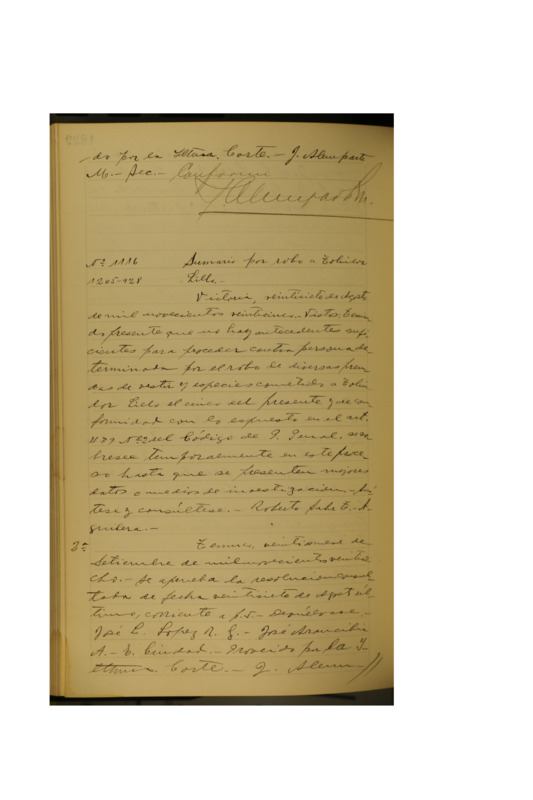 do por la Iltma. Corte.- J. Alemparte
M.- Sec.- Conforme
J. Alemparte M.
Nº 1116 Sumario por robo a
1205-128 Lillo.-
Victoria, veintisiete de Agosto
de mil novecientos Vistos: Tenien
do presente que no hay antecedentes sufi
cientes para proceder contra persona de
terminada por el robo de diversas pren
das de vestir y especies cometido a
dor Lillo el cinco del presente y de con
formidad con lo expuesto en el art.
Nº 2 del Código de P. Penal, sobre
sese temporalmente en este proce
so hasta que se presenten mejores
datos o medios de investigacion.- Anó
tese y consúltese.- Roberto
2ª Temuco, de
Setiembre de mil novecientos veintio
cho.- Se aprueba la resolucion consul
tada de fecha veintisiete de Agosto úl
timo, corriente a f. 5.- Devuélvase.-
José L. Lopez R. G.- José Arancibia
A.- E. Ciudad.- Proveido por la I-
ltma. Corte.- J. Alem-//